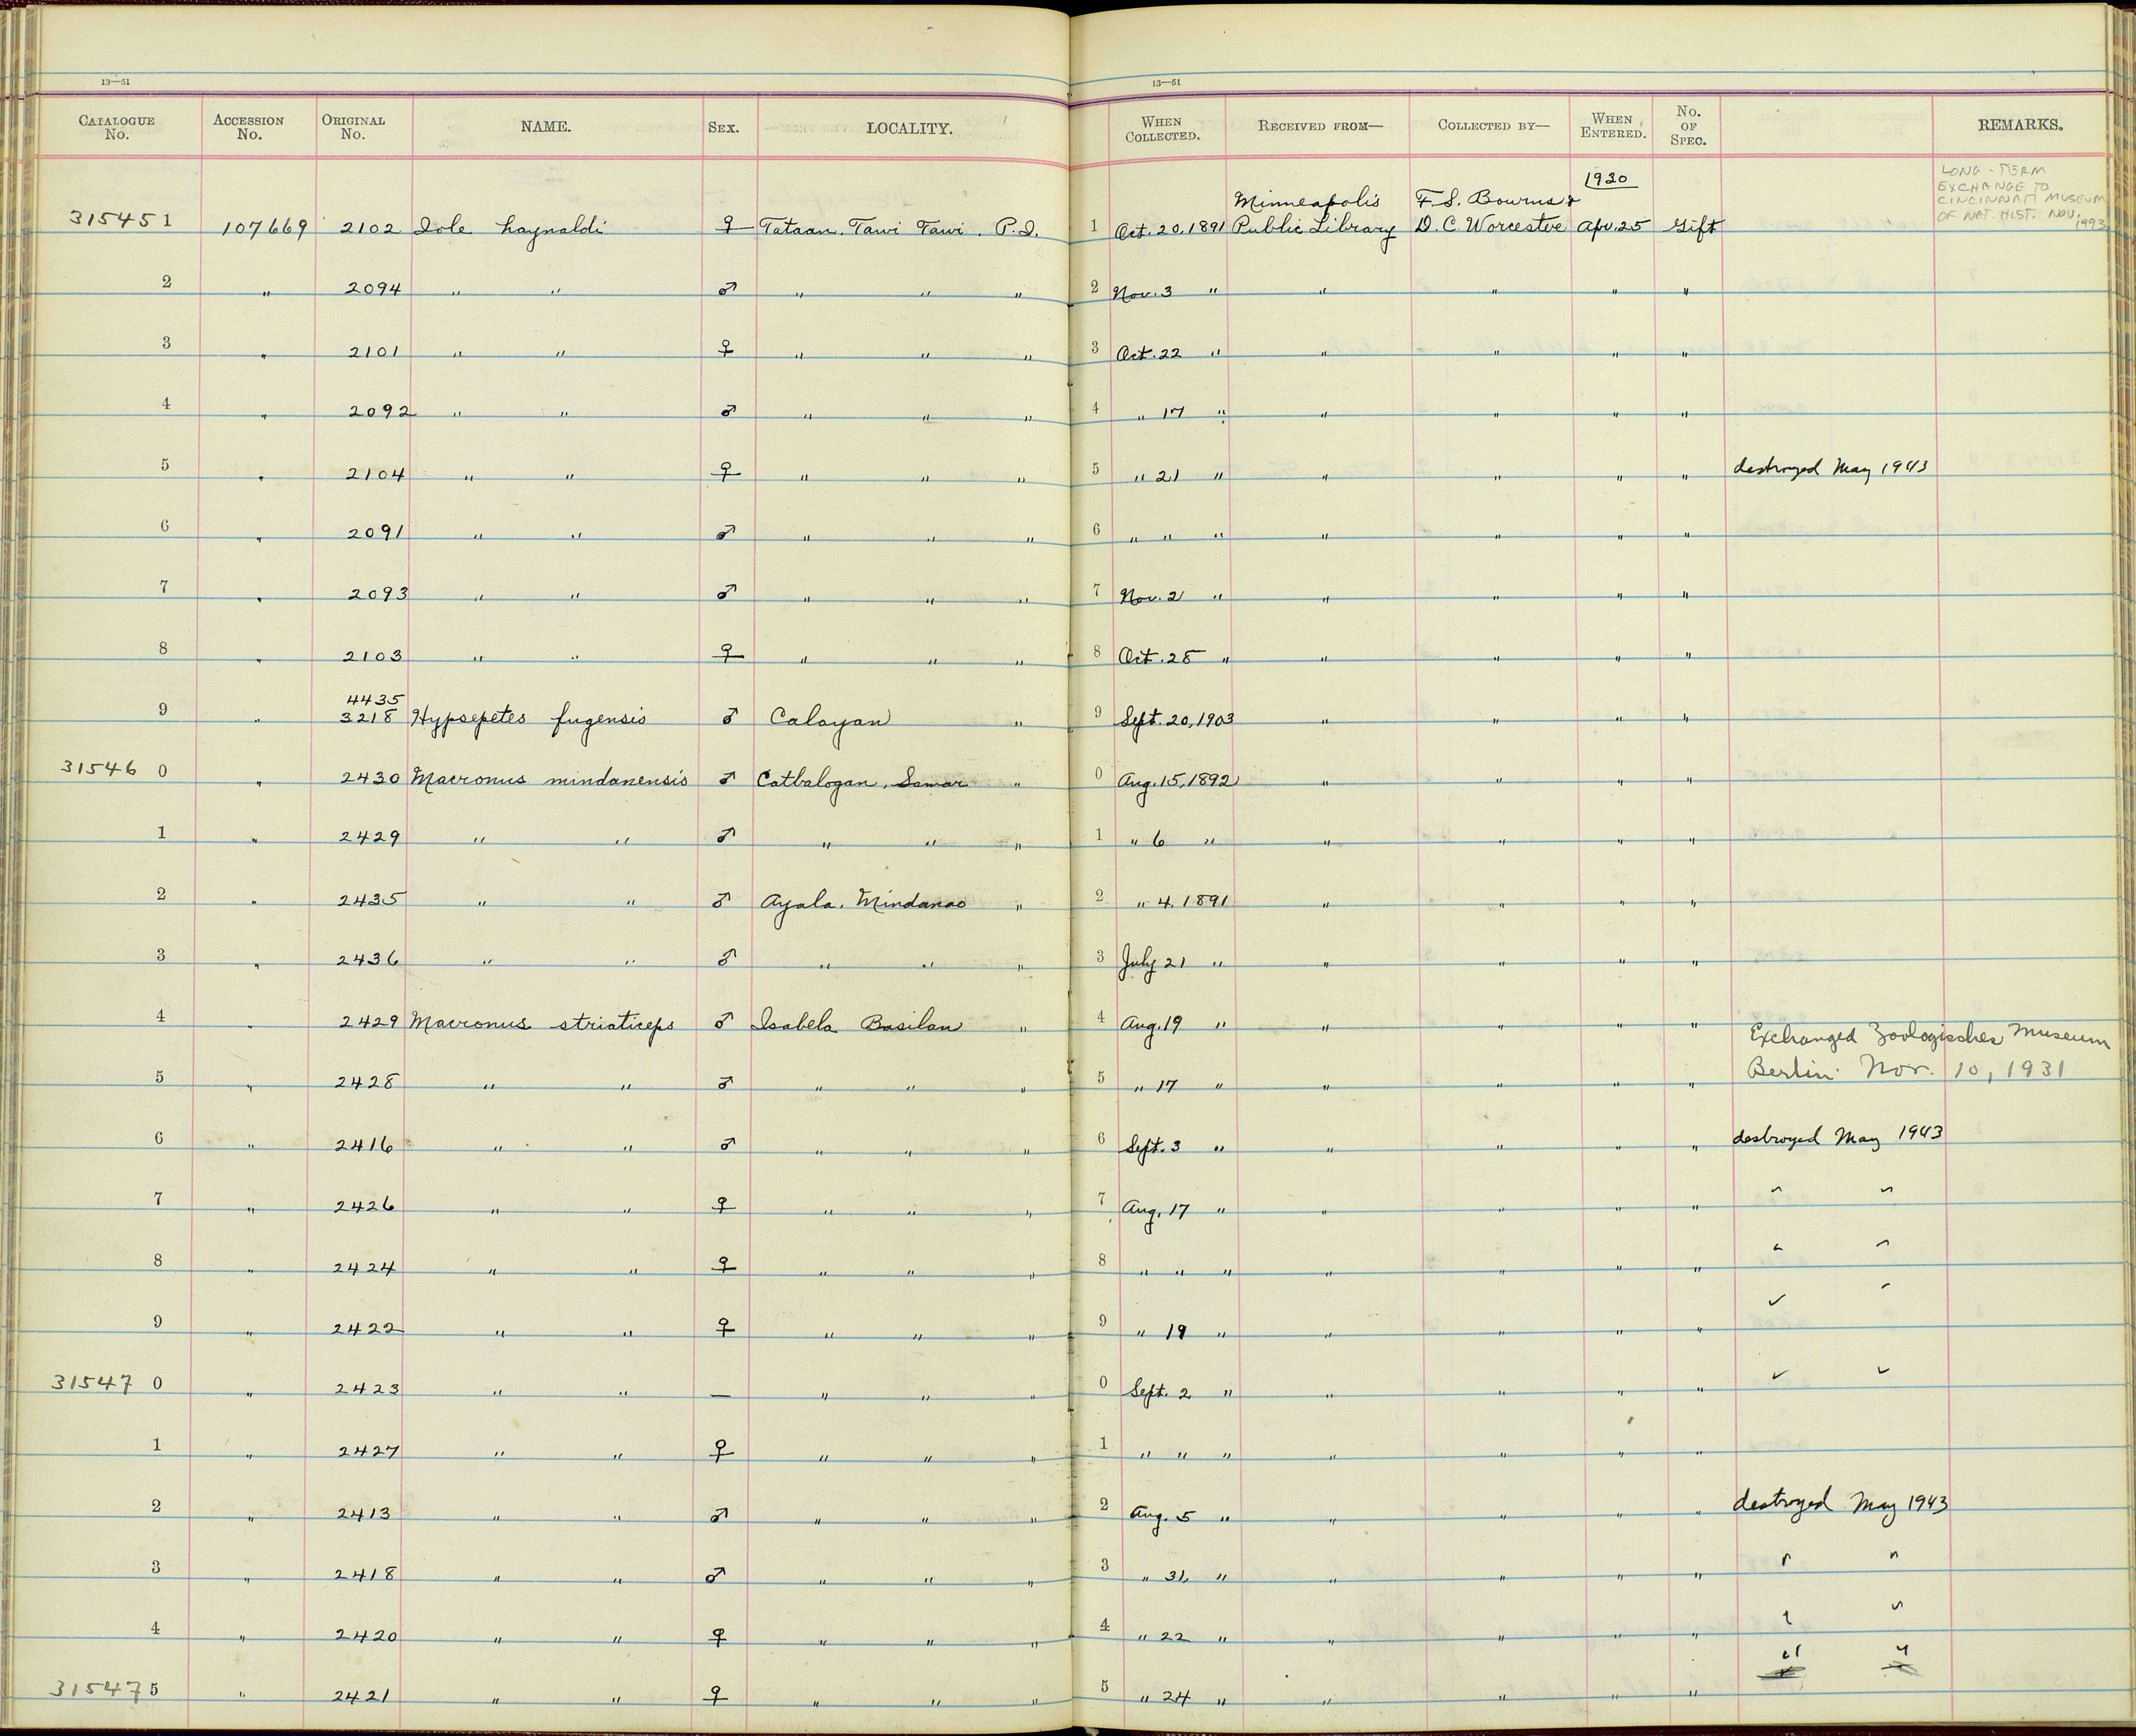 13—51 13—51
CATALOGUE No. ACCESSION No. ORIGINAL No. NAME. SEX. LOCALITY. WHEN COLLECTED. RECEIVED FROM— COLLECTED BY— WHEN ENTERED. No. OF SPEC. REMARKS.
LONG-TERM
EXCHANGE TO
CINCINNATI MUSEUM
OF NAT. HIST. NOV. 1993
1920
Minneapolis F. S. Bourns &
315451 107669 2102 Iole haynaldi ♀ Tataan. Tawi Tawi. P.I. 1 Oct. 20, 1891 Public Library D. C. Worcester Apr. 25 Gift
2 " 2094 " " ♂ " " " 2 Nov. 3 " " " " "
3 " 2101 " " ♀ " " " 3 Oct. 22 " " " " "
4 " 2092 " " ♂ " " " 4 " 17 " " " " "
5 " 2104 " " ♀ " " " 5 " 21 " " " " " destroyed May 1943
6 " 2091 " " ♂ " " " 6 " " " " " " "
7 " 2093 " " ♂ " " " 7 Nov. 2 " " " " "
8 " 2103 " " ♀ " " " 8 Oct. 28 " " " " "
4435
9 " 3218 Hypsepetes fugensis ♂ Calayan " 9 Sept. 20, 1903 " " " "
315460 " 2430 Macronus mindanensis ♂ Catbalogan, Samar " 0 Aug. 15, 1892 " " " "
1 " 2429 " " ♂ " " " 1 " 6 " " " " "
2 " 2435 " " ♂ Ayala. Mindanao " 2 " 4, 1891 " " " "
3 " 2436 " " ♂ " " " 3 July 21 " " " " "
4 " 2429 Macronus striaticeps ♂ Isabela Basilan " 4 Aug. 19 " " " " "
Exchanged Zoologisches Museum
5 " 2428 " " ♂ " " " 5 " 17 " " " " " Berlin Nov. 10, 1931
6 " 2416 " " ♂ " " " 6 Sept. 3 " " " " " destroyed May 1943
7 " 2426 " " ♀ " " " 7 Aug. 17 " " " " " " "
8 " 2424 " " ♀ " " " 8 " " " " " " " " "
9 " 2422 " " ♀ " " " 9 " 19 " " " " " " "
315470 " 2423 " " — " " " 0 Sept. 2 " " " " " " "
1 " 2427 " " ♀ " " " 1 " " " " " " "
2 " 2413 " " ♂ " " " 2 Aug. 5 " " " " " destroyed May 1943
3 " 2418 " " ♂ " " " 3 " 31 " " " " " " "
4 " 2420 " " ♀ " " " 4 " 22 " " " " " " "
315475 " 2421 " " ♀ " " " 5 " 24 " " " " " " "